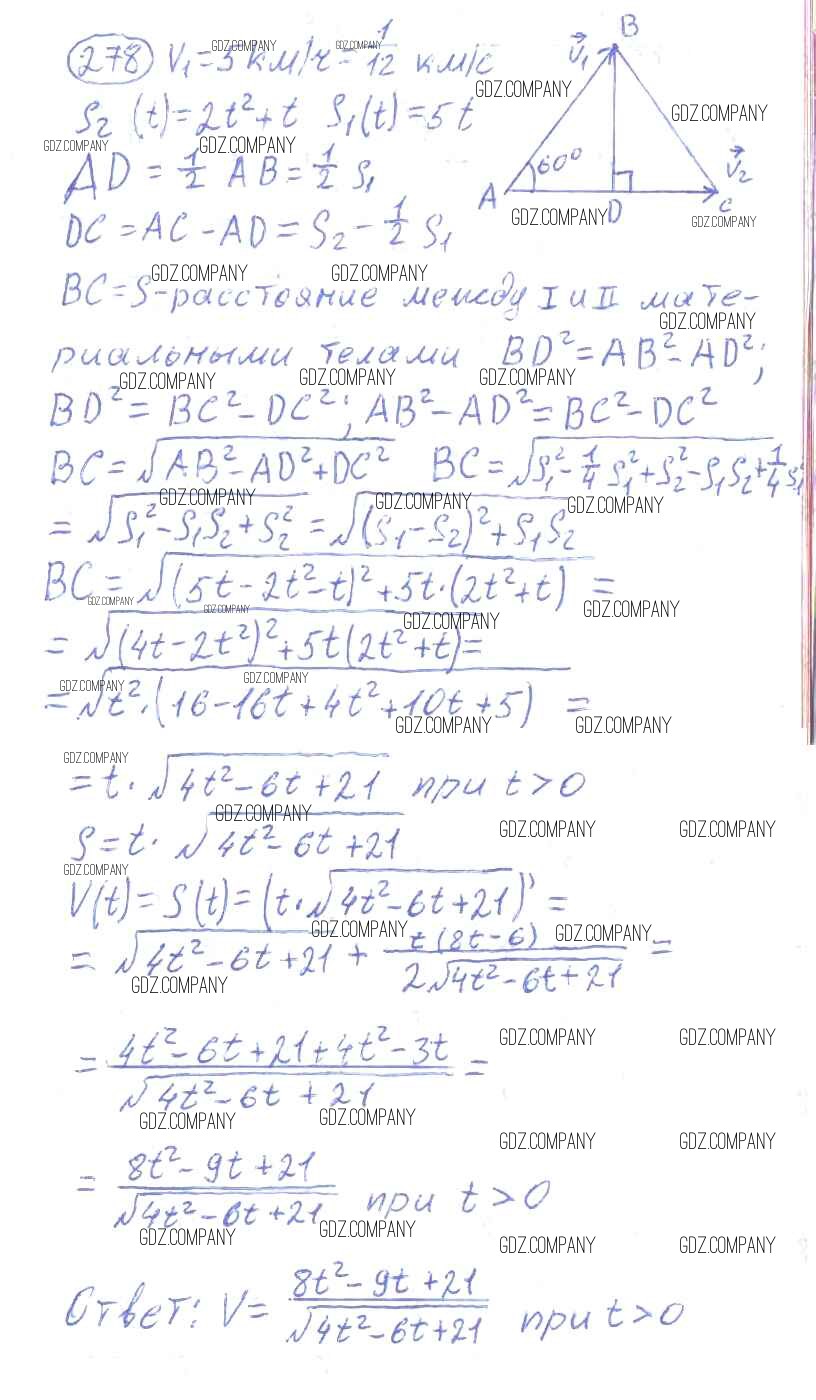 278 V₁ = 5 км/ч = 1/12 км/с
S₂(t) = 2t² + t S₁(t) = 5t
AD = 1/2 AB = 1/2 S₁
DC = AC - AD = S₂ - 1/2 S₁
B
V₁
60°
A
D
C
V₂
BC = S - расстояние между I и II мате-
риальными телами BD² = AB² - AD²;
BD² = BC² - DC²; AB² - AD² = BC² - DC²
BC = √(AB² - AD² + DC²) BC = √(S₁² - 1/4 S₁² + S₂² - S₁S₂ + 1/4 S₁²
= √(S₁² - S₁S₂ + S₂²) = √((S₁ - S₂)² + S₁S₂)
BC = √((5t - 2t² - t)² + 5t·(2t² + t)) =
= √((4t - 2t²)² + 5t(2t² + t) =
= √(t²·(16 - 16t + 4t² + 10t + 5)) =
= t·√(4t² - 6t + 21) при t > 0
S = t·√(4t² - 6t + 21)
V(t) = S(t) = (t·√(4t² - 6t + 21))' =
= √(4t² - 6t + 21) + t(8t - 6) / 2√(4t² - 6t + 21) =
= (4t² - 6t + 21 + 4t² - 3t) / √(4t² - 6t + 21) =
= (8t² - 9t + 21) / √(4t² - 6t + 21) при t > 0
Ответ: V = (8t² - 9t + 21) / √(4t² - 6t + 21) при t > 0
GDZ.COMPANY